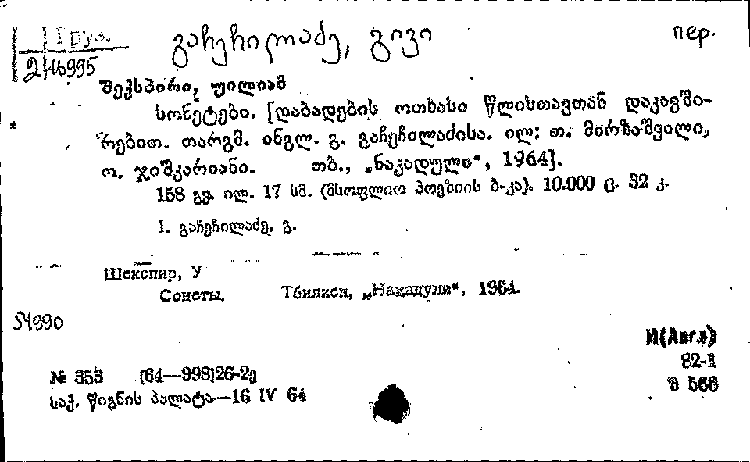 I Груз.
გაჩეჩილაძე, გივი
пер.
2/16995
შექსპირი, უილიამ
სონეტები. [დაბადების ოთხასი წლისთავთან დაკავში-
რებით. თარგმ. ინგლ. გ. გაჩეჩილაძისა. ილ: თ. მირზაშვილი,
ო. ჯიშკარიანი. თბ., „ნაკადული“, 1964].
158 გვ. ილ. 17 სმ. (მსოფლიო პოეზიის ბ-კა). 10.000 ც. 32 კ.
I. გაჩეჩილაძე, გ.
Шекспир, У
Сонеты. Тбилиси, „Накадули“, 1964.
54990
И(Англ)
82-1
№ 353 [64—998]26-2ე
შ 566
საქ. წიგნის პალატა—16 IV 64